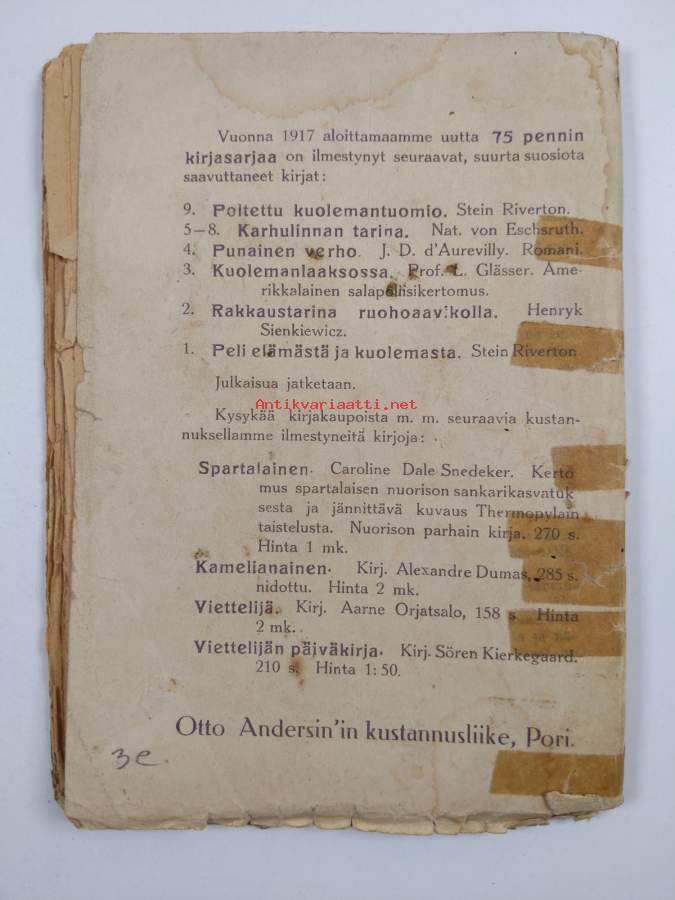 Vuonna 1917 aloittamaamme uutta 75 pennin
kirjasarjaa on ilmestynyt seuraavat, suurta suosiota
saavuttaneet kirjat:
9. Poltettu kuolemantuomio. Stein Riverton.
5—8. Karhulinnan tarina. Nat. von Eschsruth.
4. Punainen verho. J. D. d'Aurevilly. Romani.
3. Kuolemanlaaksossa. Prof. L. Glässer. Ame-
rikkalainen salapoliisikertomus.
2. Rakkaustarina ruohoaavikolla. Henryk
Sienkiewicz.
1. Peli elämästä ja kuolemasta. Stein Riverton
Julkaisua jatketaan.
Antikvariaatti.net
Kysykää kirjakaupoista m. m. seuraavia kustan-
nuksellamme ilmestyneitä kirjoja:
Spartalainen. Caroline Dale Snedeker. Kerto
mus spartalaisen nuorison sankarikasvatuk
sesta ja jännittävä kuvaus Thermopylain
taistelusta. Nuorison parhain kirja. 270 s.
Hinta 1 mk.
Kamelianainen. Kirj. Alexandre Dumas, 285 s.
nidottu. Hinta 2 mk.
Viettelijä. Kirj. Aarne Orjatsalo, 158 s. Hinta
2 mk.
Viettelijän päiväkirja. Kirj. Sören Kierkegaard.
210 s. Hinta 1:50.
Otto Andersin'in kustannusliike, Pori.
3e.